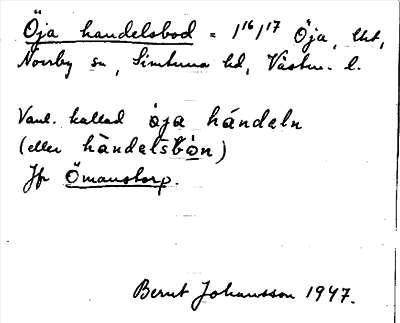 Öja handelsbod = 1/16 /17 Öja, lht,
Norrby sn, Simtuna hd, Västm. l.
Vanl. kallad öja hándeln
(eller hàndelsbòn)
Jfr Ömanstorp.
Bernt Johansson 1947.